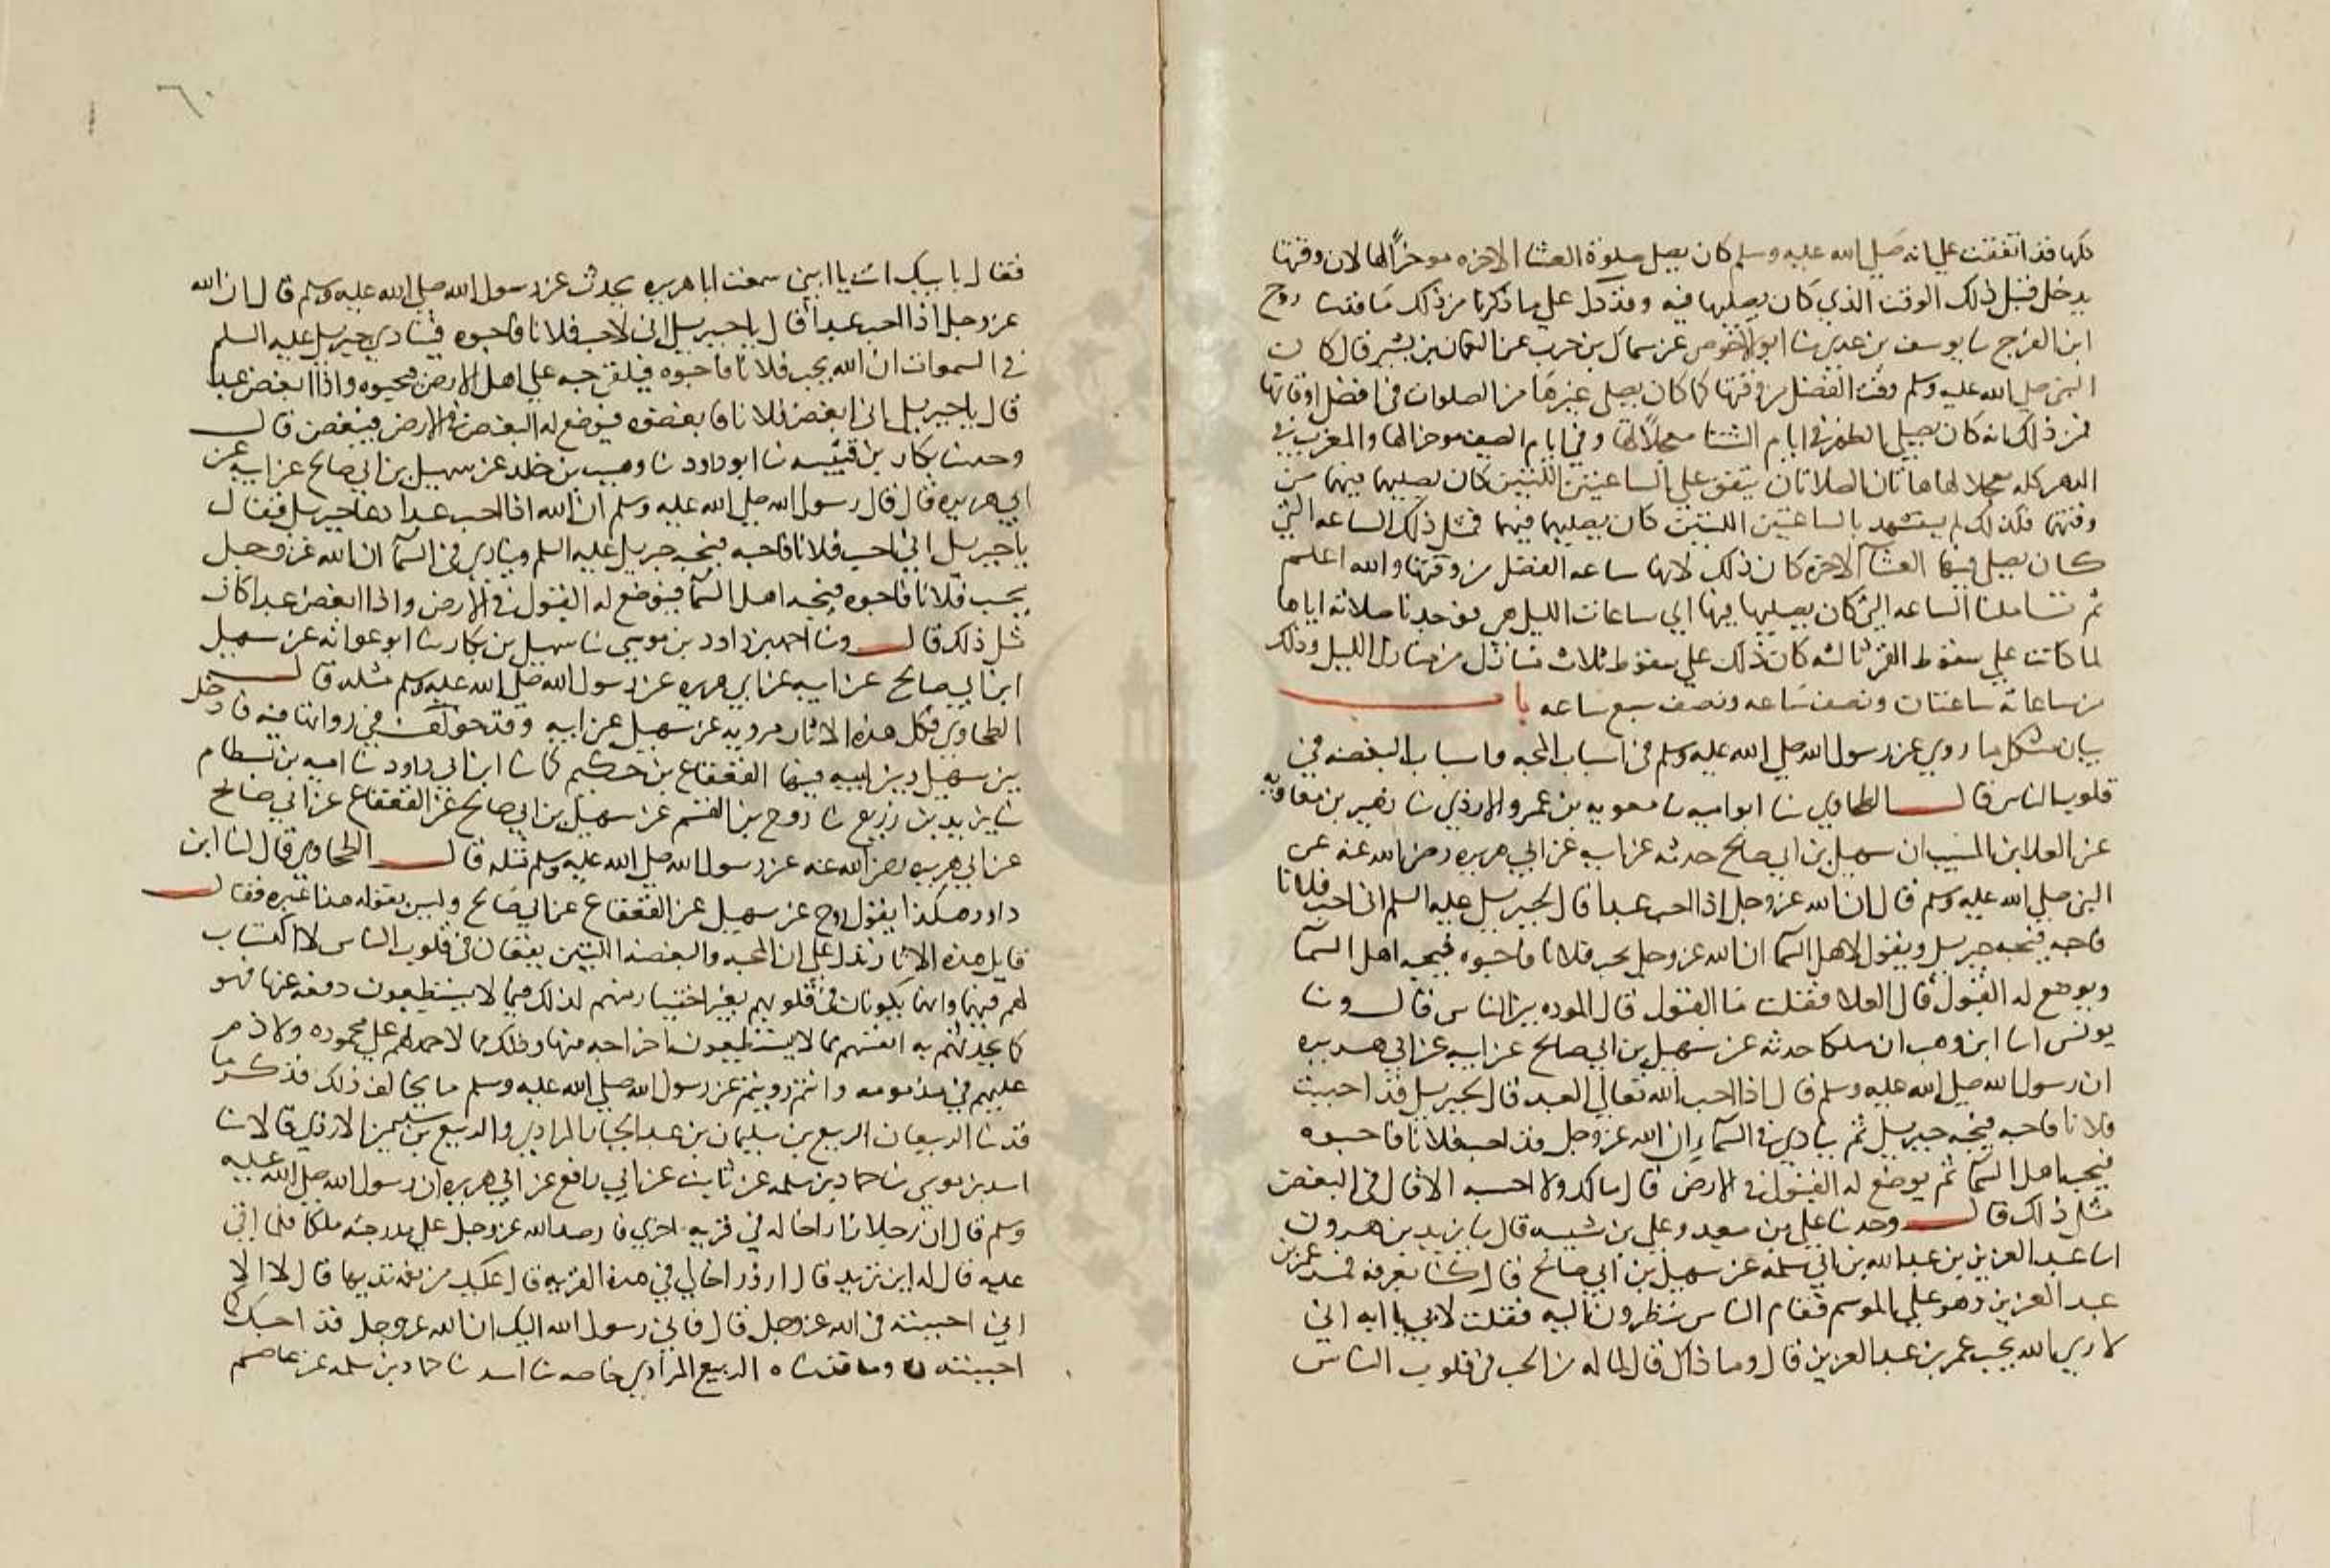 كلها قد اتفقت علي انه صلي الله عليه وسلم كان يصلي صلوة العشا الاخره موخرا لها لان وقتها
يدخل قبل ذلك الوقت الذي كان يصليها فيه وقد دل علي ما ذكرنا من ذلك ما قد ثنا روح
ابن الفرج ثنا يوسف بن عدي ثنا ابو الاحوص عن سماك بن حرب عن النعمان بن بشير قال كان
النبي صلي الله عليه وسلم وقت الفضل من وقتها كما كان يصلي غيرها من الصلوات في افضل اوقاتها
فمن ذلك انه كان يصلي الظهر في ايام الشتا معجلا لها وفي ايام الصيف موخرا لها والمغرب في
الدهر كله معجلا لها هاتان الصلاتان يتفق علي الساعتين اللتين كان يصليهما فيهما من
وقتهما فكذلك لم يستشهد بالساعتين اللتين كان يصليهما فيهما فمثل ذلك الساعه التي
كان يصلي فيها العشآ الاخرة كان ذلك لانها ساعه الفضل من وقتها والله اعلم
ثم تاملنا الساعه التي كان يصليها فيها اي ساعات الليل هي فوجدنا صلاته اياها
لما كانت علي سقوط القمر ثالثه كان ذلك علي سقوط ثلاث منازل من منازل الليل وذلك
من ساعاته ساعتان ونصف ساعه ونصف سبع ساعه باب
بيان مشكل ما روي عن رسول الله صلي الله عليه وسلم في اسباب المحبه واسباب البغضه في
قلوب الناس قال الطحاوي ثنا ابو اميه ثنا معويه بن عمرو الازدي ثنا زهير بن معاويه
عن العلا بن المسيب ان سهيل بن ابي صالح حدثه عن ابيه عن ابي هريره رضي الله عنه عن
النبي صلي الله عليه وسلم قال ان الله عز وجل اذا احب عبدا قال لجبريل عليه السلم اني احب فلانا
فاحبه فيحبه جبريل ويقول لاهل السما ان الله عز وجل يحب فلانا فاحبوه فيحبه اهل السمآ
ويوضع له القبول قال العلا فقلت ما القبول قال الموده بين الناس قال وثنا
يونس انا ابن وهب ان ملكا حدثه عن سهيل بن ابي صالح عن ابيه عن ابي هريره
ان رسول الله صلي الله عليه وسلم قال اذا احب الله تعالي العبد قال لجبريل قد احببت
فلانا فاحبه فيحبه جبريل ثم ينادي في السمآء ان الله عز وجل قد احب فلانا فاحبوه
فيحبه اهل السمآ ثم يوضع له القبول في الارض قال مالك ولا احسبه الا قال في البغض
مثل ذلك قال وحدثنا علي بن معبد وعلي بن شيبه قال ثنا يزيد بن هرون
انا عبد العزيز بن عبد الله بن ابي سلمه عن سهيل بن ابي صالح قال كنا بعرفه فمر عمر بن
عبد العزيز وهو علي الموسم فقام الناس ينظرون اليه فقلت لابي يا ابه اني
لاري الله يحب عمر بن عبد العزيز قال وما ذاك قال لما له من الحب في قلوب الناس
٦٠
فقال بابيك انت يا ابني سمعت ابا هريره يحدث عن رسول الله صلي الله عليه وسلم قال ان الله
عز وجل اذا احب عبدا قال يا جبريل اني لاحب فلانا فاحبوه فينادي جبريل عليه السلم
في السموات ان الله يحب فلانا فاحبوه فيلقي حبه علي اهل الارض فيحبوه واذا ابغض عبدا
قال يا جبريل اني ابغض فلانا فابغضوه فيوضع له البغض في الارض فيبغض قال
وحدثنا بكار بن قتيبه ثنا ابو داود ثنا وهيب بن خلد عن سهيل بن ابي صالح عن ابيه عن
ابي هريره قال قال رسول الله صلي الله عليه وسلم ان الله اذا احب عبدا دعا جبريل فقال
يا جبريل اني احب فلانا فاحبه فيحبه جبريل عليه السلم وينادي في السمآ ان الله عز وجل
يحب فلانا فاحبوه فيحبه اهل السمآ فيوضع له القبول في الارض واذا ابغض عبدا كان
مثل ذلك قال وثنا احمد بن داود بن موسي ثنا سهيل بن بكار ثنا ابو عوانه عن سهيل
ابن ابي صالح عن ابيه عن ابي هريره عن رسول الله صلي الله عليه وسلم مثله قال
الطحاوي فكل هذه الاثار مرويه عن سهيل عن ابيه وقد خولف في روايتها فيه فادخل
بين سهيل وبين ابيه فيها القعقاع بن حكيم كما ثنا ابن ابي داود ثنا اميه بن بسطام
ثنا يزيد بن زريع ثنا روح بن القسم عن سهيل بن ابي صالح عن القعقاع عن ابي صالح
عن ابي هريره رضي الله عنه عن رسول الله صلي الله عليه وسلم مثله قال الطحاوي قال لنا ابن
داود هكذا يقول روح عن سهيل عن القعقاع عن ابي صالح وليس يقوله هذا غيره فقال
قايل هذه الاثار تدل علي ان المحبه والبغضه اللتين يقعان في قلوب الناس لا اكتساب
لهم فيهما وانما يكونان في قلوبهم بغير اختيار منهم لذلك فيما لا يستطيعون دفعه عنها فهو
كما يحدثهم به انفسهم مما لا يستطيعون اخراجه منها وذلك مما لا حمد لهم علي محموده ولا ذم
عليهم في مذمومه وانتم رويتم عن رسول الله صلي الله عليه وسلم ما يخالف ذلك فذكر ما
قد ثنا الربيعان الربيع بن سليمان بن عبد الجبار المرادي والربيع بن سليمن الازدي قالا ثنا
اسد بن موسي ثنا حماد بن سلمه عن ثابت عن ابي رافع عن ابي هريره ان رسول الله صلي الله عليه
وسلم قال ان رجلا زار اخا له في قريه اخري فارصد الله عز وجل علي مدرجته ملكا فلما اتي
عليه قال له اين تريد قال ازور اخا لي في هذه القريه قال عليك من نعمه تربها قال لا الا
اني احببته في الله عز وجل قال فاني رسول الله اليك ان الله عز وجل قد احبك كما
احببته وما قد ثناه الربيع المرادي خاصه ثنا اسد ثنا حماد بن سلمه عن عاصم